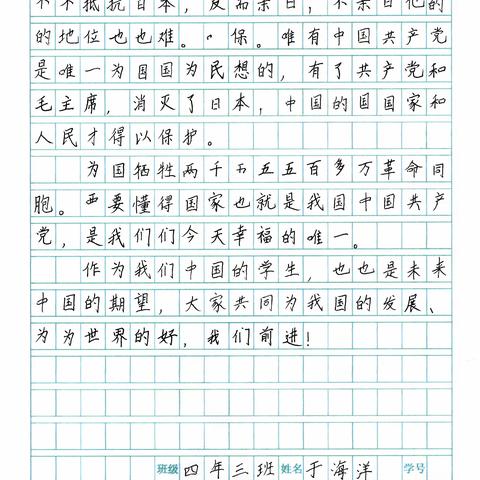 不不抵抗日本，反而亲日，不亲日他的
的地位也也难。“保。唯有中国共产党
是唯一为国国为民想的，有了共产党和
毛主席，消灭了日本，中国的国国家和
人民才得以保护。
为国牺牲两千五五五百多万革命同
胞。要懂得国家也就是我国中国共产
党，是我们们今天幸福的唯一。
作为我们中国的学生，也也是未来
中国的期望，大家共同为我国的发展、
为为世界的好，我们前进！
班级 四年三班 姓名 于海洋 学号